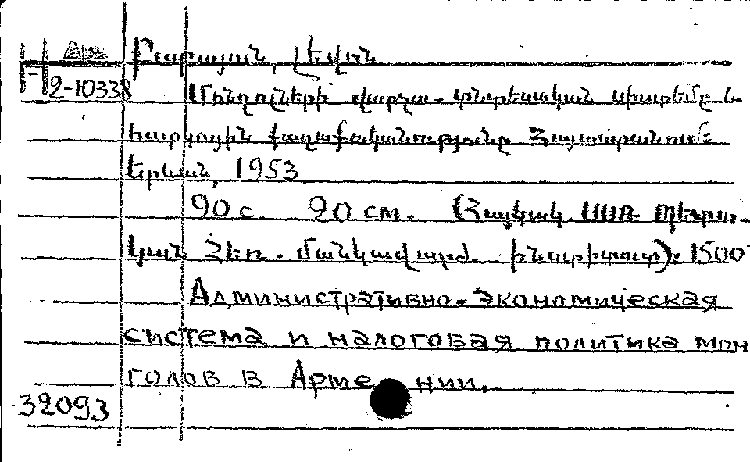 Բաբայան, Լևոն
2-10338
Մոնղոլների վարչա-տնտեսական սիստեմը և
հարկային քաղաքականությունը Հայաստանում:
Երևան, 1953
90 с. 20 см. (Հայկակ. ՍՍՌ Պետա-
կան Հեռ. Մանկավարժ. ինստիտուտ): 1500
Административно-экономическая
система и налоговая политика мон
голов в Армении.
32093